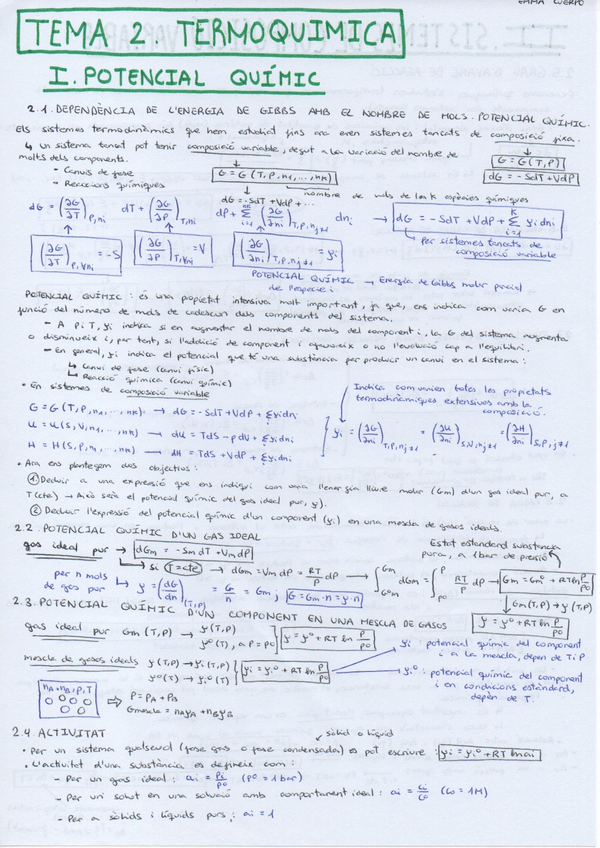 EMMA CUERPO
TEMA 2. TERMOQUIMICA
I. POTENCIAL QUÍMIC
2.1. DEPENDÈNCIA DE L'ENERGIA DE GIBBS AMB EL NOMBRE DE MOLS. POTENCIAL QUÍMIC.
Els sistemes termodinàmics que hem estudiat fins ara eren sistemes tancats de composició fixa.
↳ un sistema tancat pot tenir composició variable, degut a la variació del nombre de
molts dels components.
- Canvis de fase
- Reaccions químiques
G = G(T, P, n1, ..., nk)
G = G(T, P)
dG = -SdT + VdP + ...
dG = -SdT + VdP
nombre de mols de les k espècies químiques
dG = (∂G/∂T)P,ni dT + (∂G/∂P)T,ni dP + Σ(i=1, k) (∂G/∂ni)T,P,nj≠1 dni → dG = -SdT + VdP + Σ(i=1, k) yi dni
(∂G/∂T)P,∀ni = -S
(∂G/∂P)T,∀ni = V
(∂G/∂ni)T,P,nj≠1 = yi
↳ Per sistemes tancats de
composició variable
POTENCIAL QUÍMIC → Energia de Gibbs molar parcial
de l'espècie i
POTENCIAL QUÍMIC: és una propietat intensiva molt important, ja que, ens indica com varia G en
funció del número de mols de cadascun dels components del sistema.
- A P i T, yi indica si en augmentar el nombre de mols del component i, la G del sistema augmenta
o disminueix i, per tant, si l'addició de component i afavoreix o no l'evolució cap a l'equilibri.
- En general, yi indica el potencial que té una substància per produir un canvi en el sistema:
↳ Canvi de fase (canvi físic)
↳ Reacció química (canvi químic)
• En sistemes de composició variable
Indica com varien totes les propietats
termodinàmiques extensives amb la
composició.
G = G(T, P, n1, ..., nk) → dG = -SdT + VdP + Σyidni
U = U(S, V, n1, ..., nk) → dU = TdS - pdV + Σyidni
H = H(S, P, n1, ..., nk) → dH = TdS + VdP + Σyidni
yi = (∂G/∂ni)T,P,nj≠1 = (∂U/∂ni)S,V,nj≠1 = (∂H/∂ni)S,P,j≠1
• Ara ens plantegem dos objectius:
① Deduir a una expressió que ens indiqui com varia l'energia lliure molar (Gm) d'un gas ideal pur, a
T(cte) → Això serà el potencial químic del gas ideal pur, y).
② Deduir l'expressió del potencial químic d'un component (yi) en una mescla de gasos ideals.
2.2. POTENCIAL QUÍMIC D'UN GAS IDEAL
Estat estàndard substància
pura, a 1 bar de pressió
gas ideal pur → dGm = -SmdT + VmdP
↳ si T=cte → dGm = VmdP = RT/P dP → ∫(G°m, Gm) dGm = ∫(P°, P) RT/P dP → Gm = Gm° + RT ln P/P°
per n mols
de gas pur
↳ y = (dG/dn)(T,P) = G/n = Gm; G = Gm·n = y·n
Gm(T,P) → y(T,P)
y = y° + RT ln P/P°
2.3. POTENCIAL QUÍMIC D'UN COMPONENT EN UNA MESCLA DE GASOS
gas ideal pur Gm(T,P) → y(T,P)
y°(T), a P = P°
y = y° + RT ln P/P°
mescla de gasos ideals y(T,P) → yi(T,P)
y°(T) → yi°(T)
yi = yi° + RT ln P/P°
yi: potencial químic del component
i a la mescla, depen de T i P
yi°: potencial químic del component
i en condicions estàndard,
depèn de T.
nA + nB, P, T
→ P = PA + PB
Gmescla = nAyA + nByB
2.4. ACTIVITAT
sòlid o líquid
• Per un sistema qualsevol (fase gas o fase condensada) es pot escriure: yi = yi° + RT ln ai
• L'activitat d'una substància es defineix com:
- Per un gas ideal: ai = Pi/P° (P° = 1 bar)
- Per un solut en una solució amb comportament ideal: ai = ci/c° (c° = 1M)
- Per a sòlids i líquids purs: ai = 1